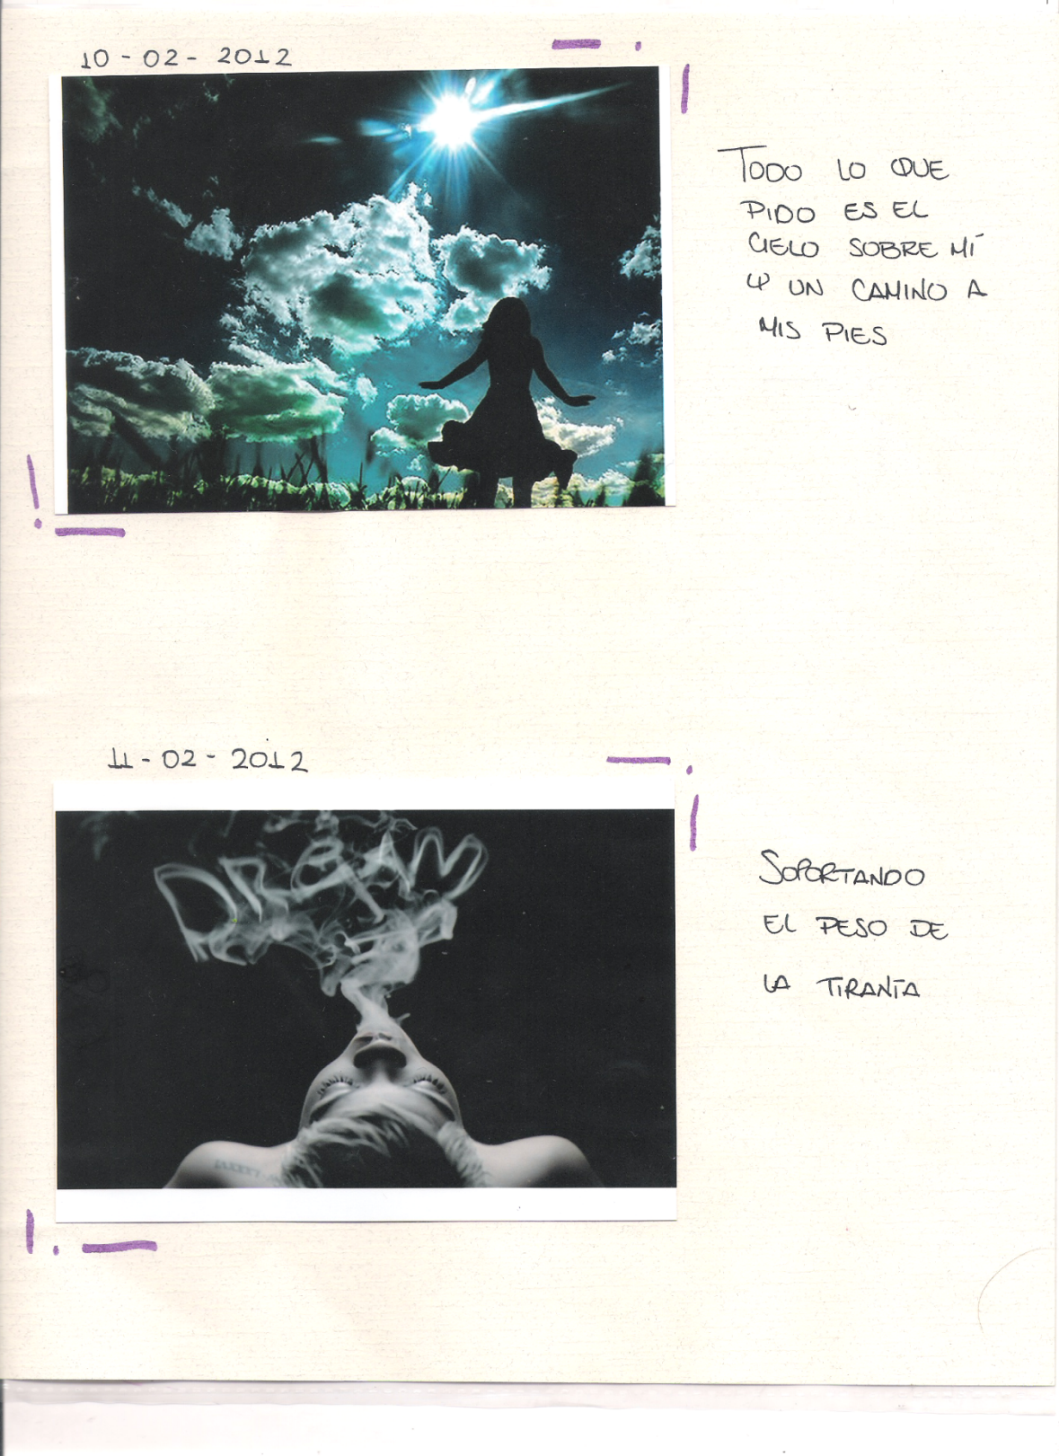 10-02-2012
TODO LO QUE
PIDO ES EL
CIELO SOBRE MÍ
Y UN CAMINO A
MIS PIES
11-02-2012
DREAM
SOPORTANDO
EL PESO DE
LA TIRANÍA